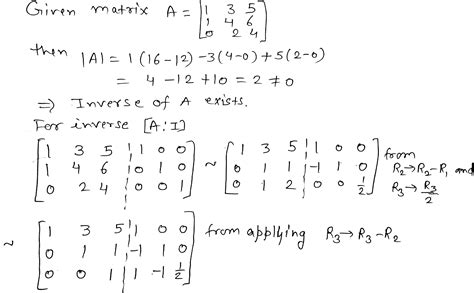 Given matrix A = [1 3 5
1 4 6
0 2 4]
then |A| = 1(16-12) -3(4-0) +5(2-0)
= 4 -12 +10 = 2 ≠ 0
⇒ Inverse of A exists.
For inverse [A:I]
[1 3 5 ¦ 1 0 0
1 4 6 ¦ 0 1 0
0 2 4 ¦ 0 0 1] ~ [1 3 5 ¦ 1 0 0
0 1 1 ¦ -1 1 0
0 1 2 ¦ 0 0 1/2] from
R2→R2-R1 and
R3→R3/2
~ [1 3 5 ¦ 1 0 0
0 1 1 ¦ -1 1 0
0 0 1 ¦ 1 -1 1/2] from applying R3→R3-R2